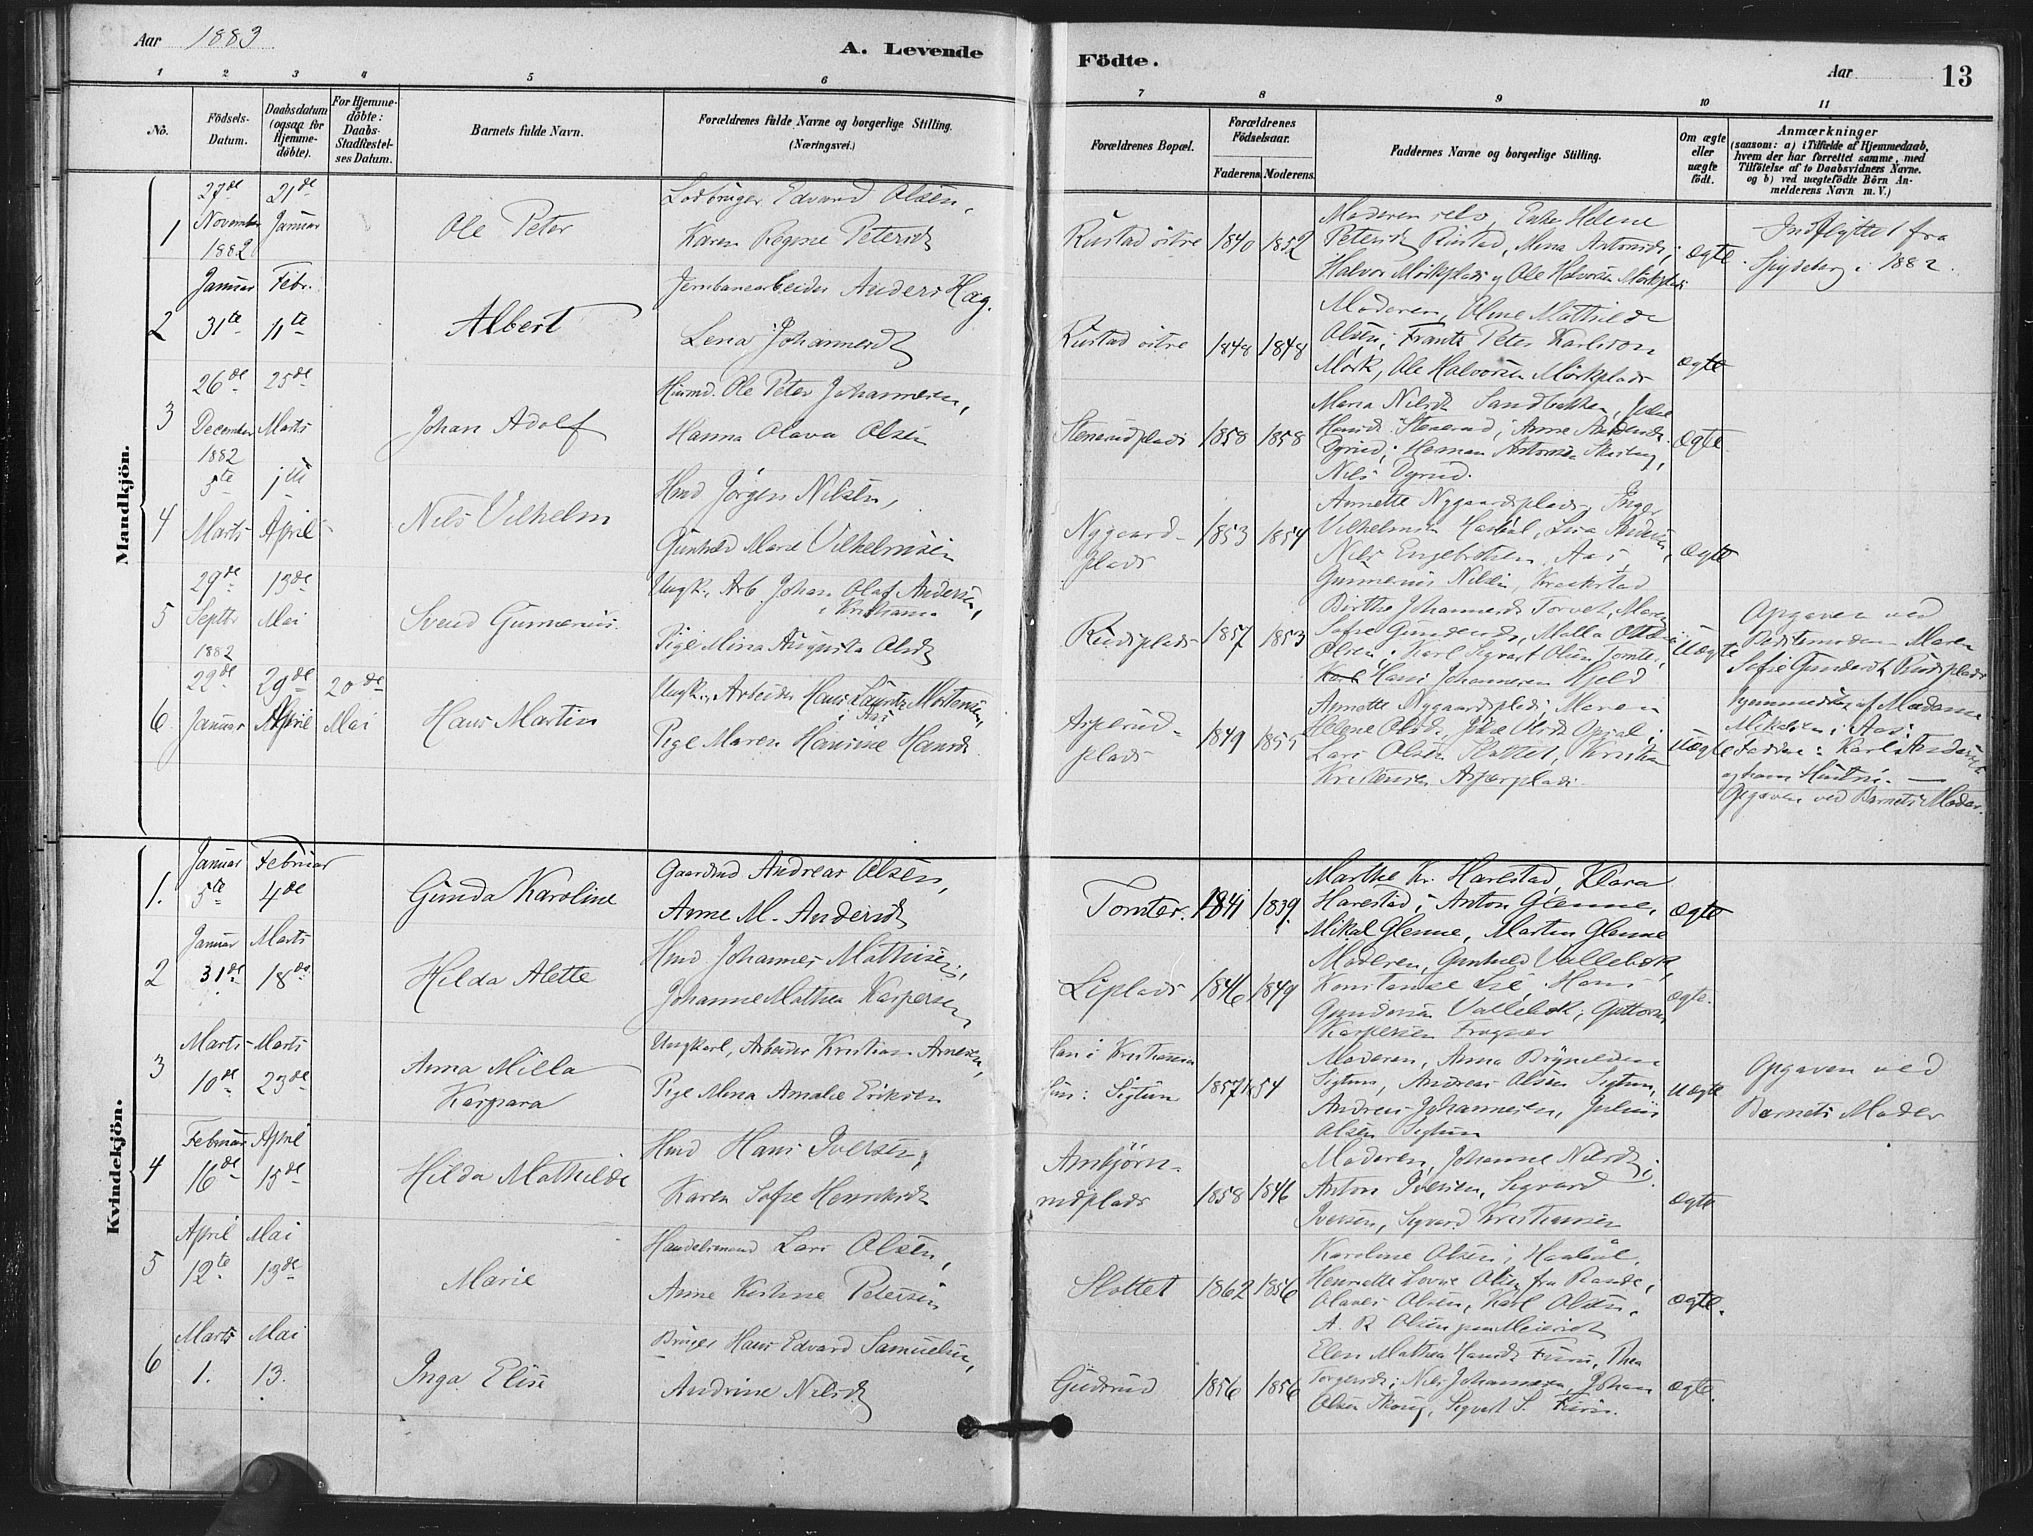 Aar 1883
A. Levende
Födte.
Aar
13
1 2 3 4 5 6 7 8 9 10 11
No.
Födsels-
Datum.
Daabsdatum
(ogsaa for
Hjemme-
döbte).
For Hjemme-
döbte:
Daabs-
Stadfæstel-
ses Datum.
Barnets fulde Navn.
Forældrenes fulde Navne og borgerlige Stilling.
(Næringsvei.)
Forældrenes Bopæl.
Forældrenes
Födselsaar.
Faderens. Moderens.
Faddernes Navne og borgerlige Stilling.
Om ægte
eller
uægte
födt.
Anmærkninger
(saasom: a) i Tilfælde af Hjemmedaab,
hvem der har forrettet samme, med
Tilföielse af to Daabsvidners Navne.
og b) ved uægtefödte Börn An-
melderens Navn m. V.)
Mandkjön.
1
27de
November
1882
21de
Januar
Ole Peter
Edvard Olsen,
Karen Regine Petersdt
Rustad östre
1840 1852
Moderen selv, Enke Helene
Petersdt Rustad, Mina Antonsdt;
Halvor Mörkplads, Ole Halvorsen Mörkplads
ægte
Indflyttet fra
Spydeberg i 1882.
2
Januar
31te
Febr.
11te
Albert
Jernbanearbeider Anders Hag.
Lena Johannesdt
Rustad östre
1848 1848
Moderen, Oline Mathilde
Olsen; Frants Peter Karlson
Mörk, Ole Halvorsen Mörkplads
ægte
3
26de
December
1882
25de
Marts
Johan Adolf
Husmd. Ole Peter Johannesen,
Hanna Olava Olsen
Stenerudplads
1858 1858
Maria Nilsdt Sandbakken,
Hansdt Stenerud; Anne Andersdt
Dyrud; Herman Antonsen
Nils Dyrud.
ægte
4
5te
Marts
1ste
April
Nils Vilhelm
Hmd Jörgen Nilsen,
Gunhild Marie Vilhelmsen
Nygaard-
plads
1853 1854
Annette Nygaardsplads, Inger
Vilhelmsen
Nils Engebretsen, Aas,
Gunnerius Nilsen, Kraakstad
ægte
5
29de
Septbr
1882
13de
Mai
Svend Gunnerius.
Ungk., Arb Johan Olaf Andersen,
i Kristiania
Pige Mina Augusta Olsdt
Rudsplads
1857 1853
Birthe Johannesdt Torvet, Maren
Sofie Gundersdt, Malla
Olsen; Karl Sigvart Olsen Tomter,
Hans Johannesen Hjeld
Uægte
Opgaven ved
Maren
Sofie Gundersdt Rudsplads
6.
22de
Januar
29de
April
20de
Mai
Hans Martin
Ungk., Arbeider Hans Lauritz Mortensen,
i Aas
Pige Maren Hansine Hansdt.
Asperud-
plads
1849 1855
Annette Nygaardsplads, Maren
Helene Olsdt,
Lars Olsen Slottet, Kristian
Kristensen Asperplads.
Uægte
Hjemmedöbt af Madame
Mikalsen i Aas;
Faddere: Karl Andersen
og hans Hustru. —
Opgaven ved Barnets Moder.
Kvindekjön.
1.
Januar
5te
Februar
4de
Gunda Karoline
Gaardmd Andreas Olsen,
Anne M. Andersdt
Tomter.
1841 1839.
Marthe Kr. Harestad, Klara
Harestad; Anton Glenne,
Mikal Glenne, Martin Glenne
ægte
2
Januar
31de
Marts
18de
Hilda Alette
Hmd. Johannes Mathisen,
Johanne Mathea Kaspersen
Liplads
1846 1849
Moderen, Gunhild Vallebæk,
Konstanse Lie, Hans
Gundersen Vallebæk; Guttorm
Kaspersen Fragner
ægte.
3
Marts
10de
Marts
23de
Anna Milla
Kaspara
Ungkarl, Arbeider Kristian Arnesen,
Pige Mina Amalie Eriksen
Han i Kristiania
Hun: Sigtun
1857 1854
Moderen, Anna Brynildsen
Sigtun, Andreas Olsen Sigtun,
Andreas Johannesen, Julius
Olsen Sigtun
uægte
Opgaven ved
Barnets Moder
4
Februar
16de
April
15de
Hilda Mathilde
Hmd Hans Iversen,
Karen Sofie Henriksdt
Arnbjörn-
rudplads
1858 1846
Moderen, Johanne Nilsdt;
Anton Iversen, Sigvard
Iversen, Sigvard Kristiansen
ægte
5
April
12te
Mai
13de
Marie
Handelsmand Lars Olsen,
Anne Kirstine Petersen
Slottet
1862 1856
Karoline Olsen,
Henriette Lovise Olsen fra Rande,
Olaves Olsen, Karl Olsen,
A. R. Olsen
ægte.
6
Marts
1.
Mai
13.
Inga Elise
Bruger Hans Edvard Samuelsen,
Andrine Nilsdt
Gudsrud
1856 1856
Elen Mathea Hansdt Furu, Thea
Torgersdt; Nils Johannesen, Johan
Olsen Skoug, Sigvart S. Furu.
ægte.